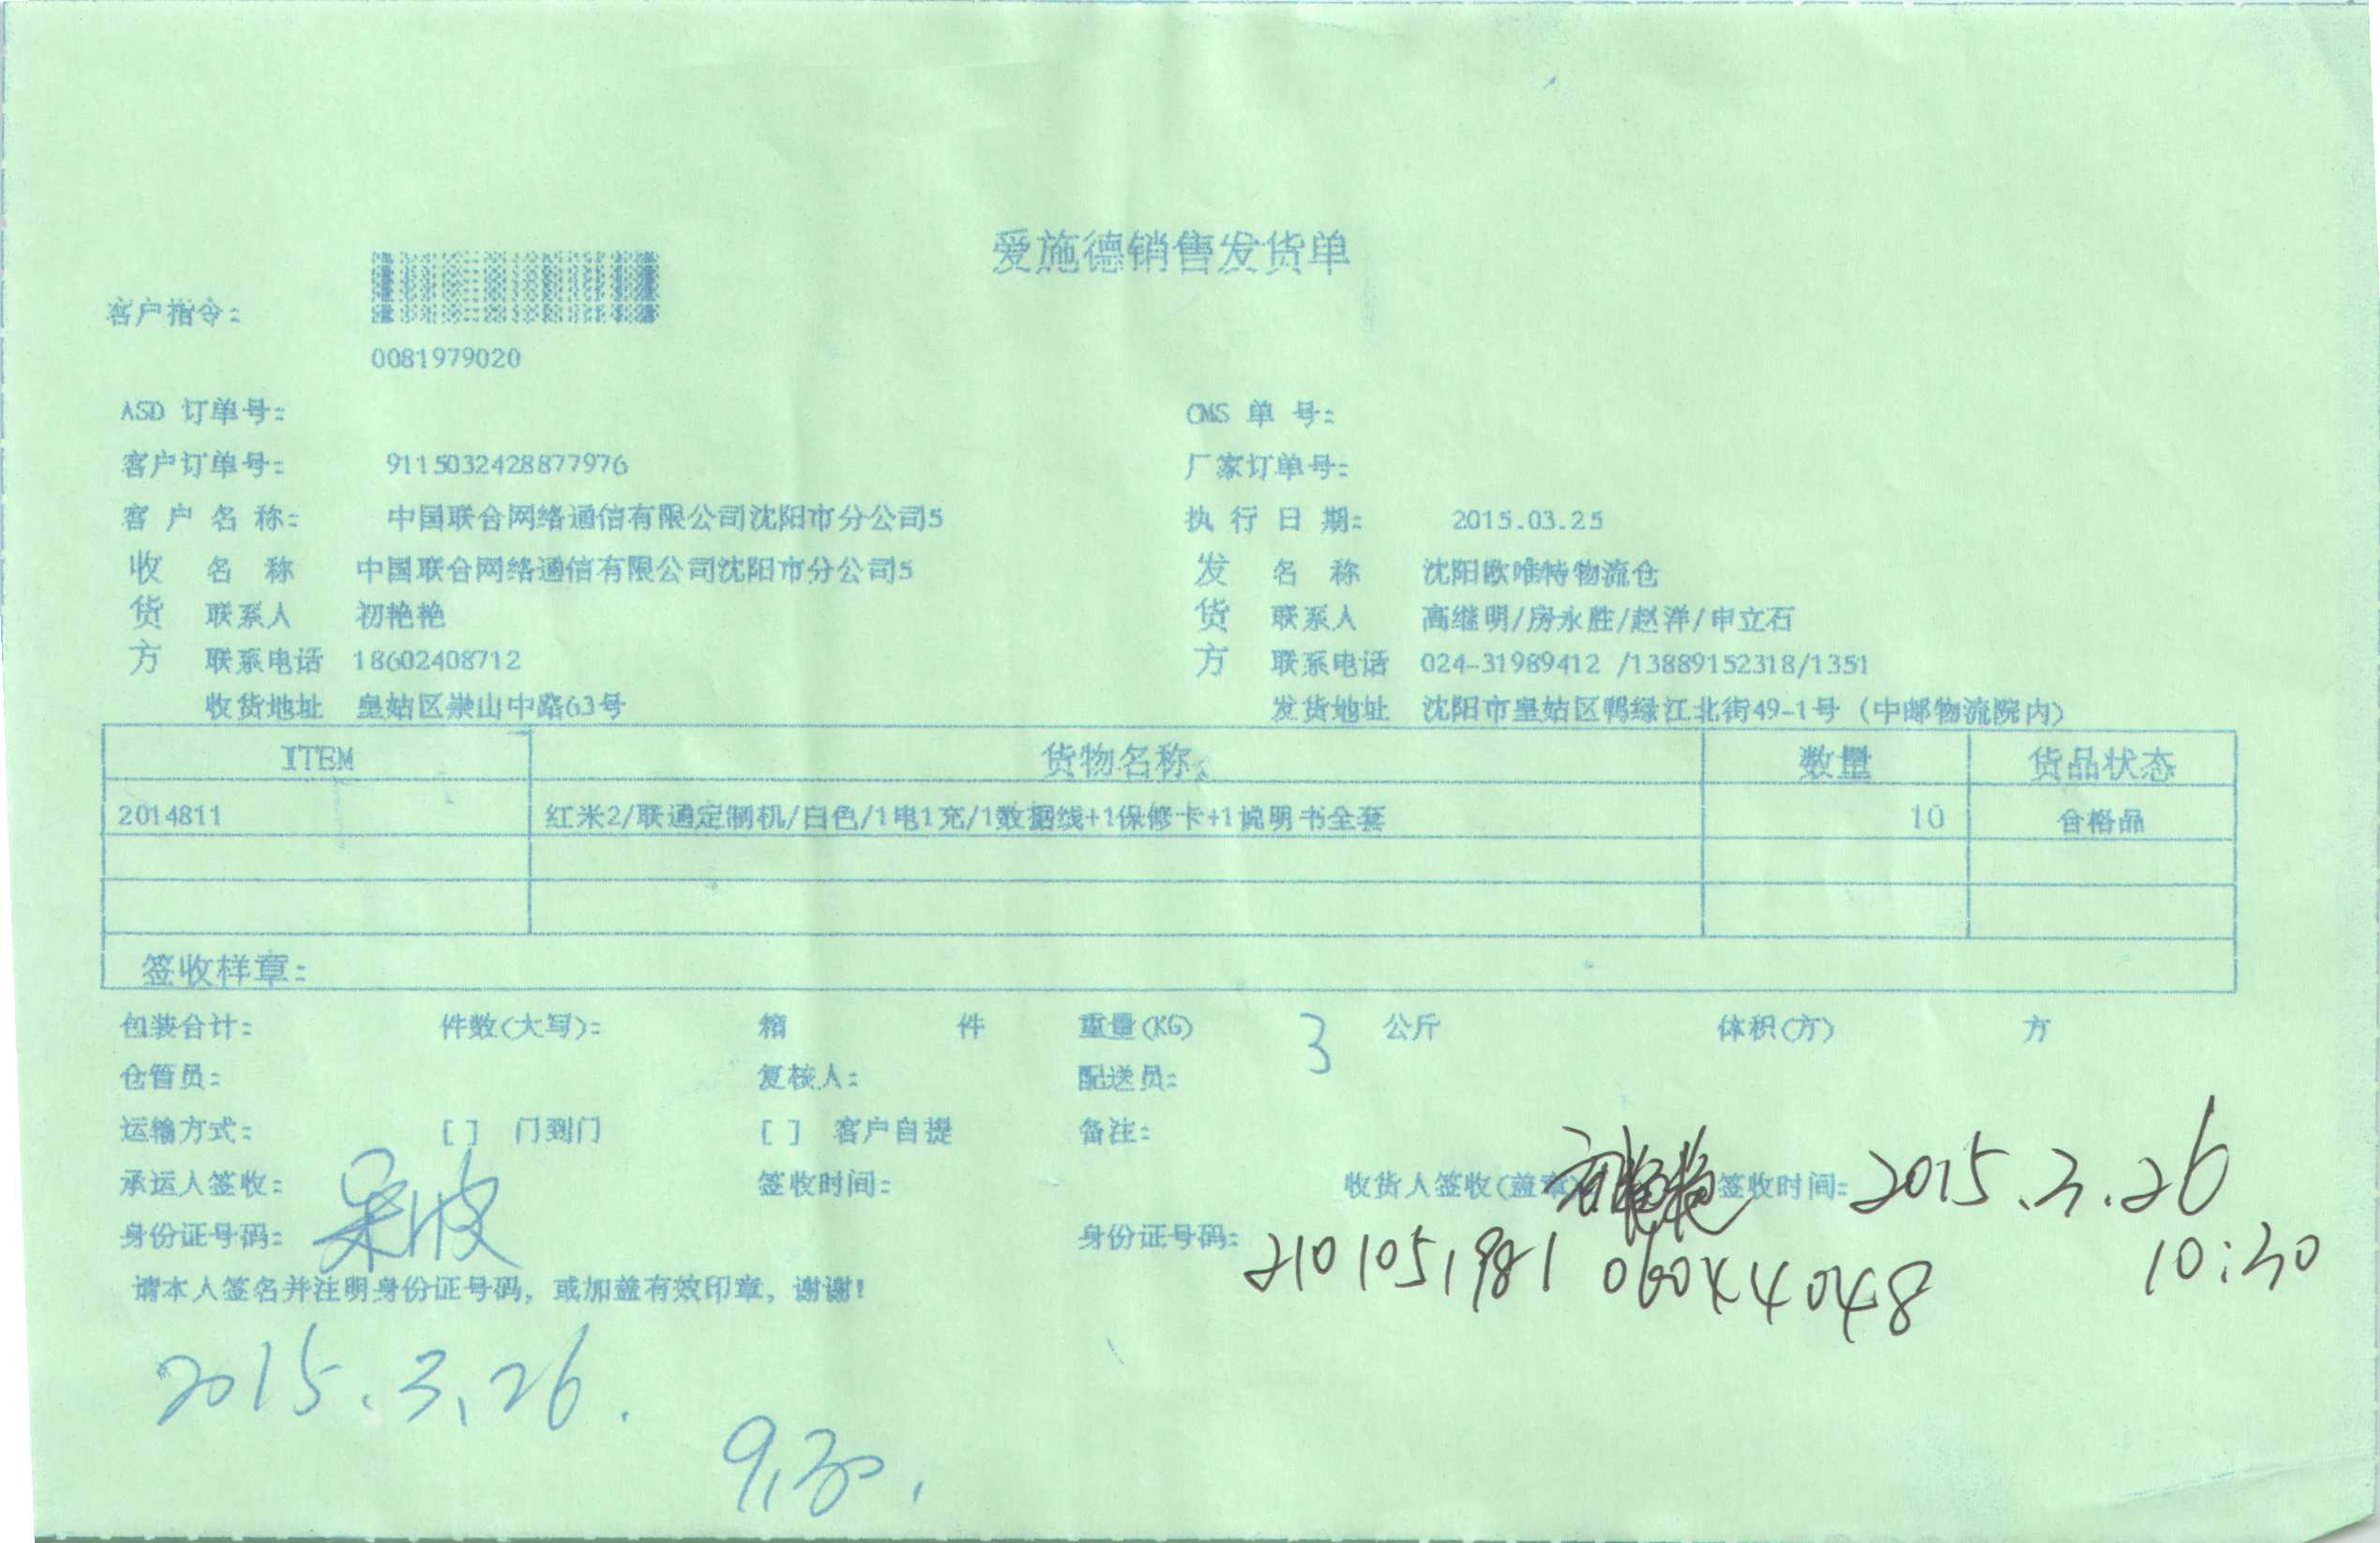 爱施德销售发货单
客户指令:
0081979020
ASD 订单号: CMS 单 号:
客户订单号: 9115032428877976 厂家订单号:
客 户 名 称: 中国联合网络通信有限公司沈阳市分公司5 执 行 日 期: 2015.03.25
收 名 称 中国联合网络通信有限公司沈阳市分公司5 发 名 称 沈阳欧唯特物流仓
货 联系人 初艳艳 货 联系人 高继明/房永胜/赵洋/申立石
方 联系电话 18602408712 方 联系电话 024-31989412 /13889152318/1351
收货地址 皇姑区崇山中路63号 发货地址 沈阳市皇姑区鸭绿江北街49-1号 (中邮物流院内)
ITEM 货物名称 数量 货品状态
2014811 红米2/联通定制机/白色/1电1充/1数据线+1保修卡+1说明书全套 10 合格品
签收样章:
包装合计: 件数(大写): 箱 件 重量(KG) 3 公斤 体积(方) 方
仓管员: 复核人: 配送员:
运输方式: [ ] 门到门 [ ] 客户自提 备注:
承运人签收: 吴波 签收时间: 收货人签收(盖章 初艳艳 签收时间: 2015.3.26
身份证号码: 身份证号码: 2101051981 10:30
请本人签名并注明身份证号码, 或加盖有效印章, 谢谢!
2015.3.26.
9,30.